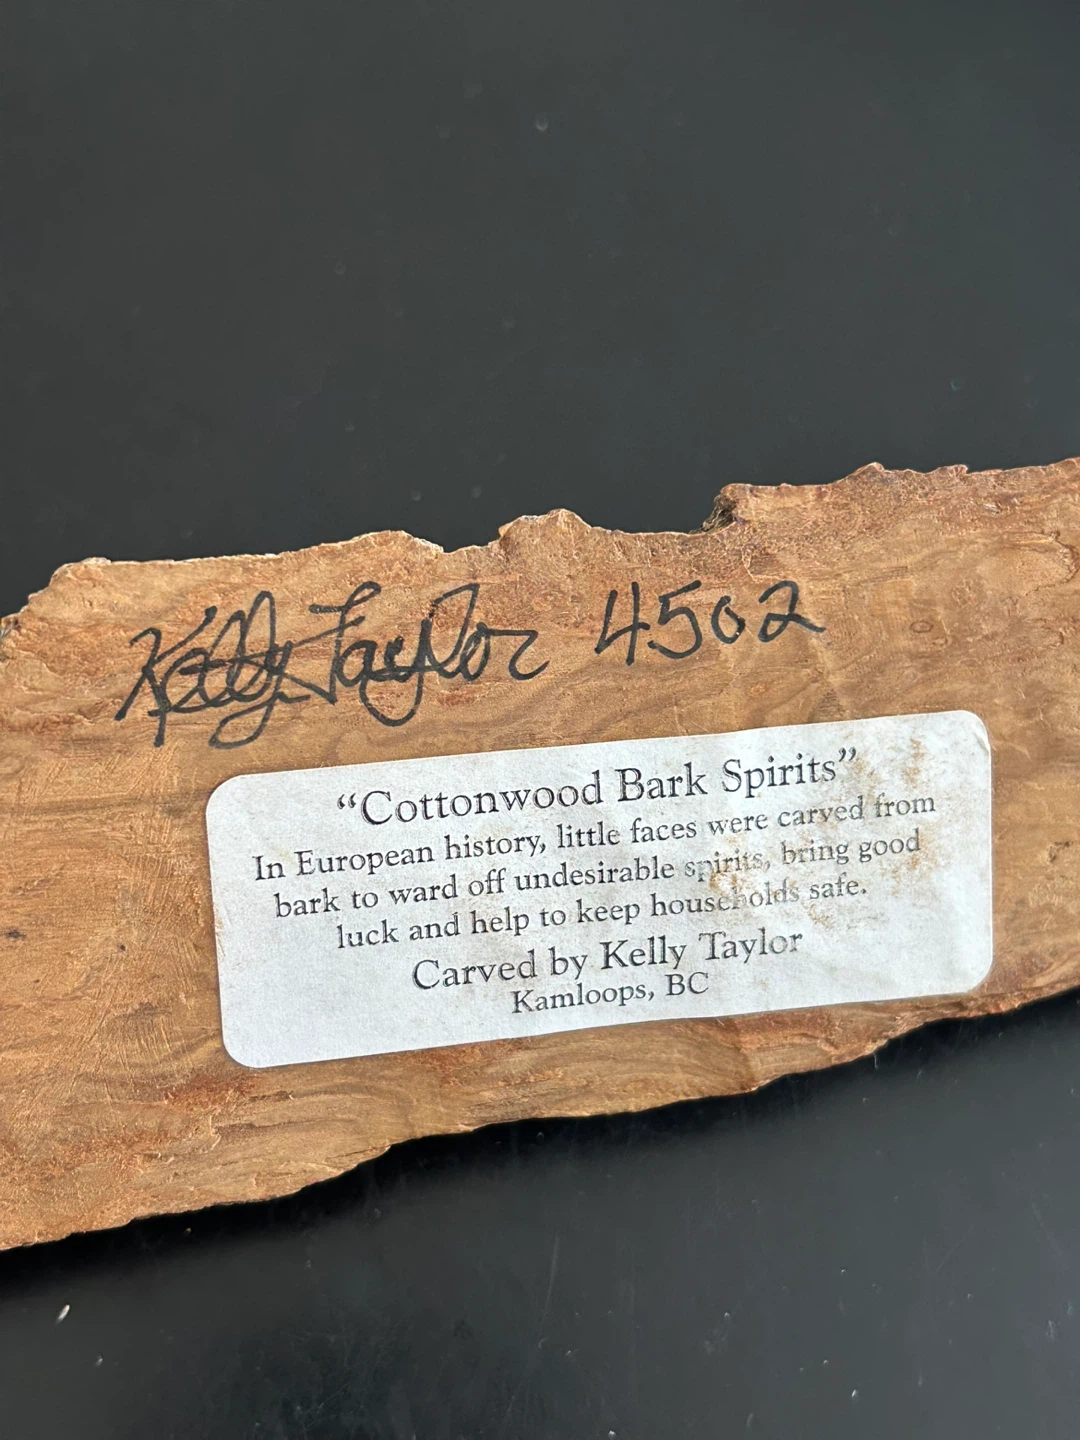 Kelly Taylor 4502
“Cottonwood Bark Spirits”
In European history, little faces were carved from
bark to ward off undesirable spirits, bring good
luck and help to keep households safe.
Carved by Kelly Taylor
Kamloops, BC